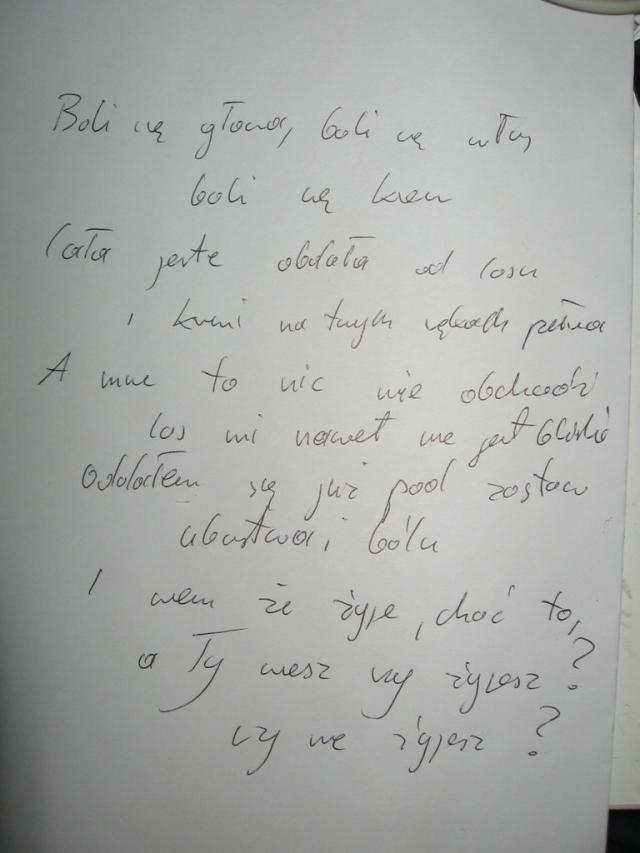 Boli cię głowa, boli cię włos,
boli cię krew
Cała jesteś oddała od losu
i krwi na twych rękach pełna
A mnie to nic nie obchodzi
los mi nawet nie jest bliski
Oddałem się już pod zastaw
ubóstwa i bólu
I wiem że żyję, choć to,
a Ty wiesz czy żyjesz?
czy nie żyjesz?